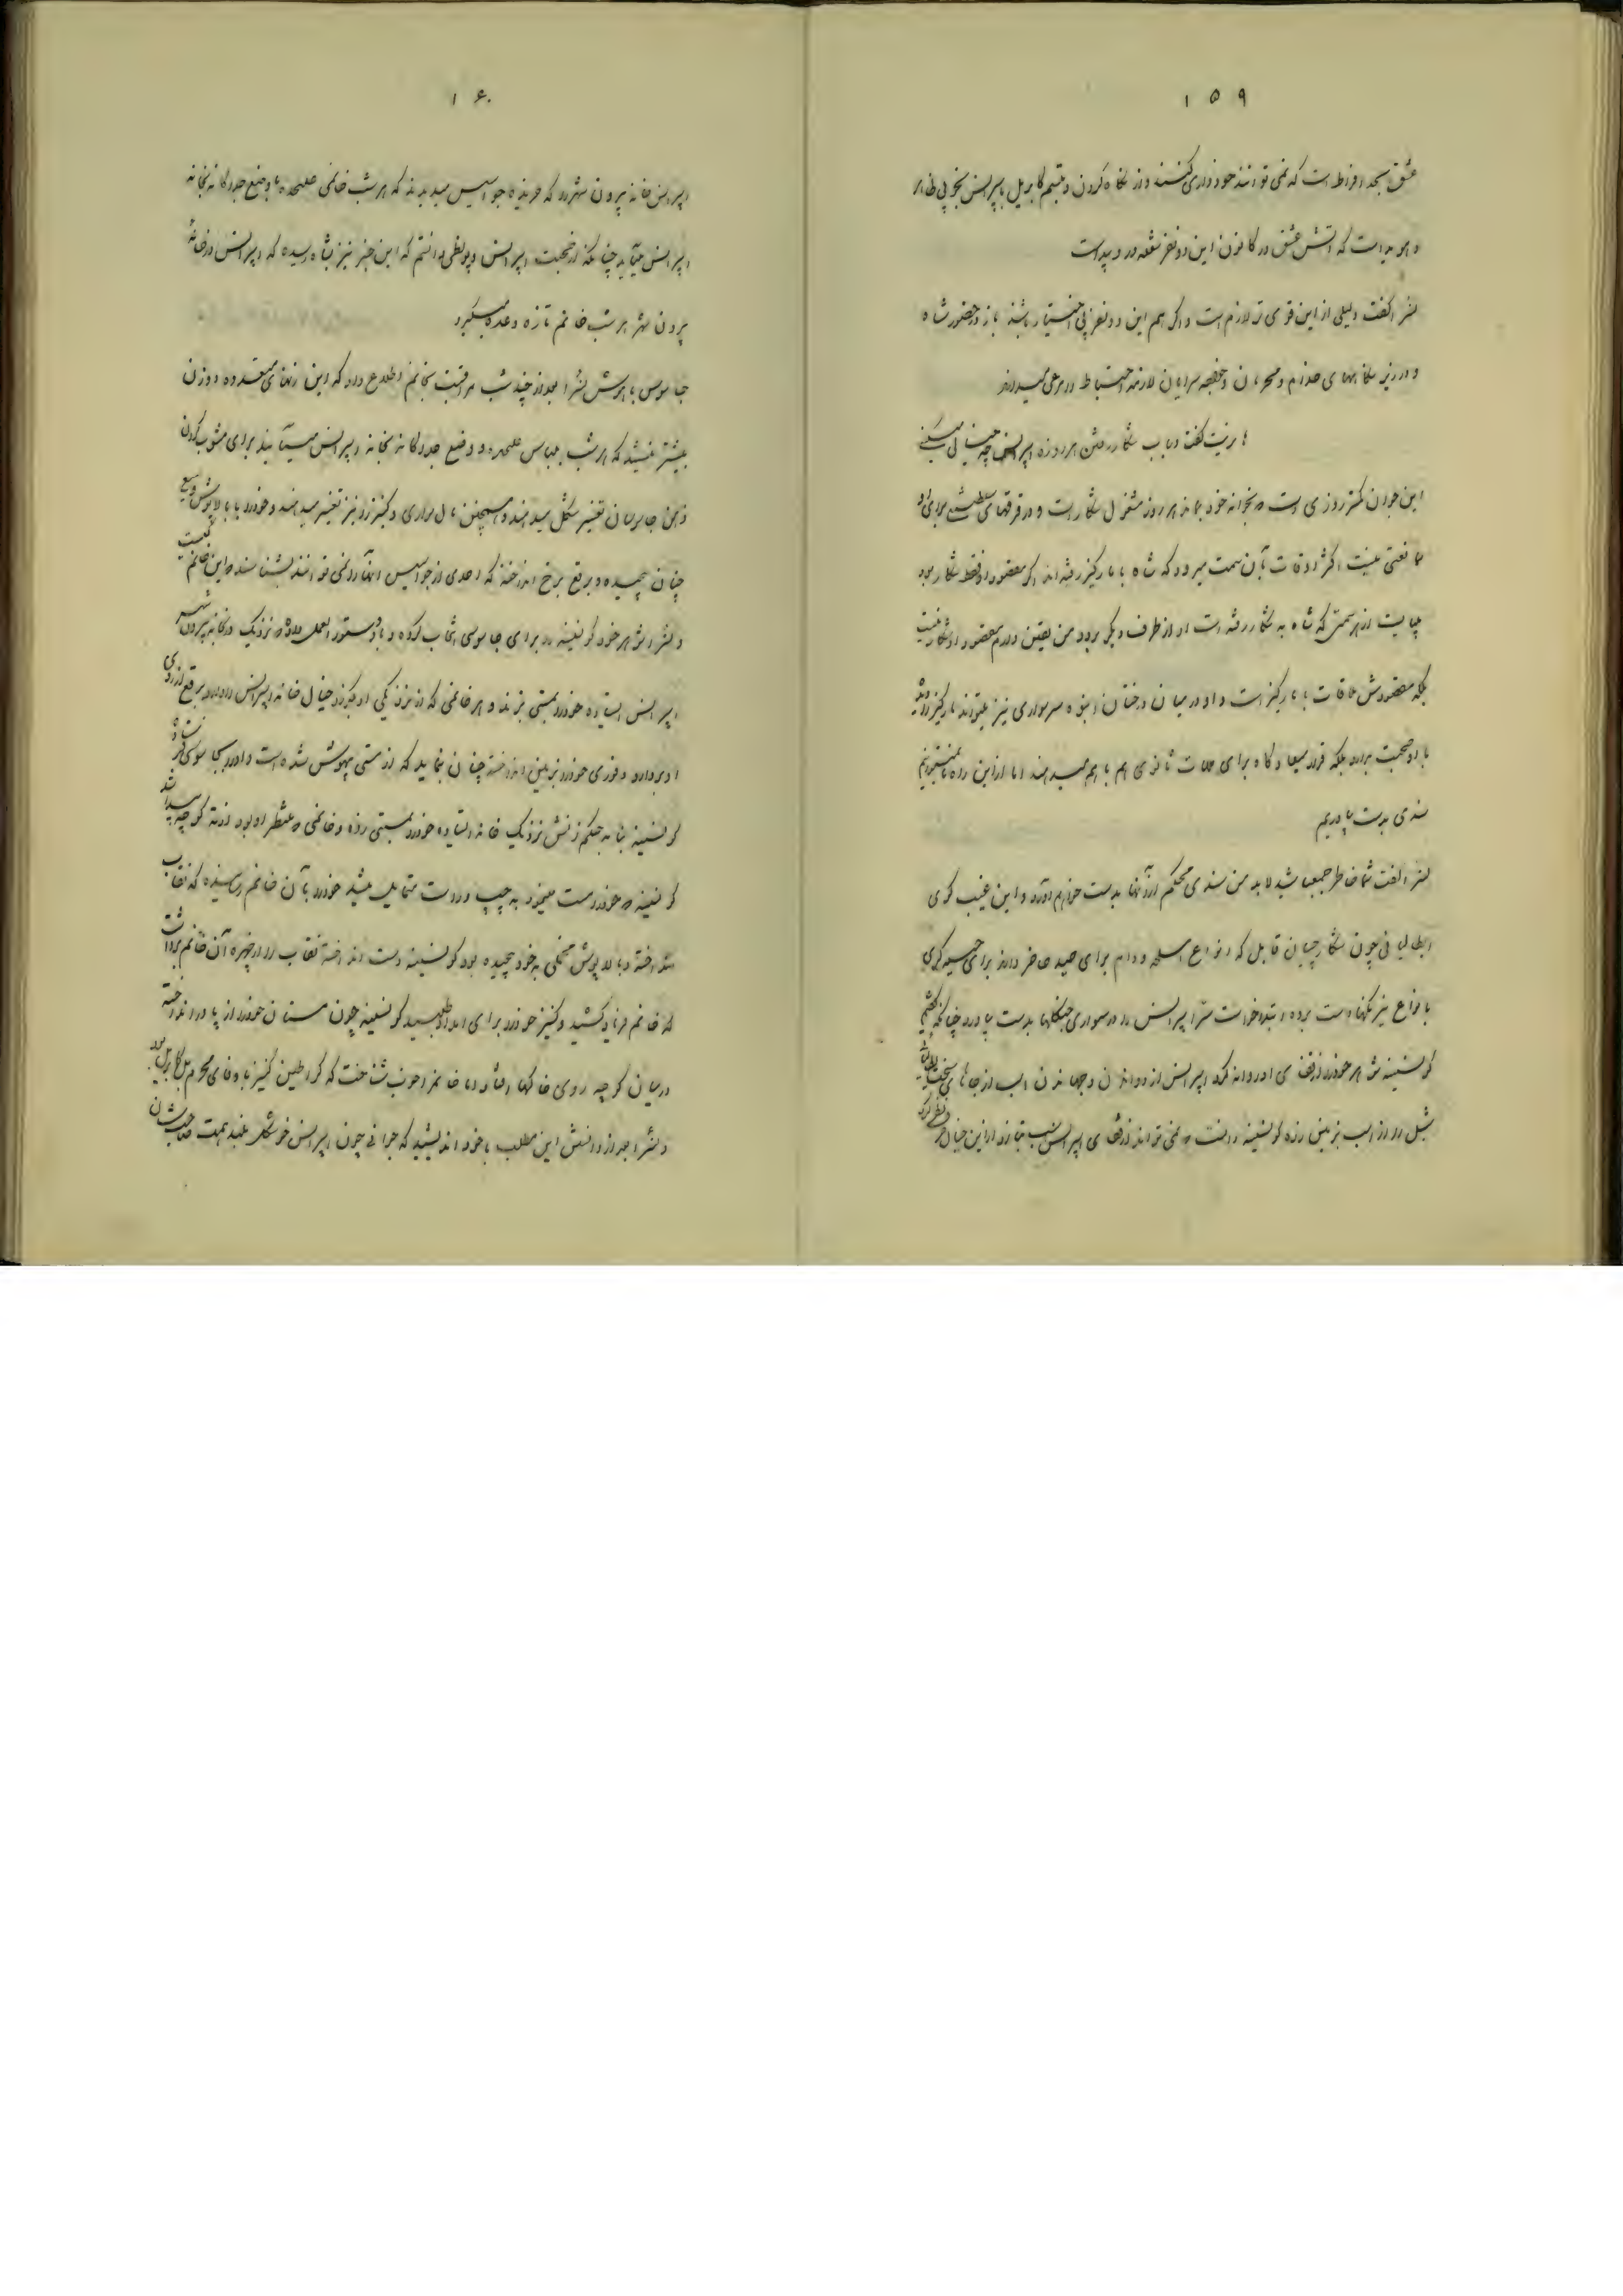 ۱۵۹
عشق بحد افراط است که نمی‌توانند خودداری کنند و از نگاه کردن و تبسم کابریل با پیرانس بخوبی ظاهر
و هویداست که آتش عشق در کانون این دو نفر شعله‌ور و پیداست
گفت دلیلی از این قوی‌تر لازم است و اگر هم این دو نفر بی‌اختیار باشند باز در حضور شاه
و در زیر نگاههای ملازم و محرمان و خواجه‌سرایان لازمه احتیاط را مرعی میدارند
گفت در باب شکار رفتن هر روزه اپرانس چه خیال می‌کنی
این جوان کمتر روزی است در خانه خود بماند هر روز مشغول شکار است و در قرقهای سلطنتی برای او
ممانعتی نیست اکثر اوقات بآن سمت میرود که شاه با مارکیز رفته‌اند اگر مقصود او فقط شکار بود
میبایست از هر سمتی که شاه به شکار رفته است او از طرف دیگر برود من یقین دارم مقصود او شکار نیست
بلکه مقصودش ملاقات با مارکیز است و او در میان درختان انبوه سرسواری نیز میتواند مارکیز را دیده
با او صحبت بدارد بلکه قرار میعادگاه برای ملاقات ثانوی هم با هم میدهند اما از این راه نمیتوانیم
سندی بدست بیاوریم
گفت شما خاطر جمع باشید لابد من سندی محکم از آنها بدست خواهم آورد و این عجیب کوی
ایطالیانی چون شکارچیان قابل که انواع اسلحه و دام برای صید حاضر دارند برای جاسوس‌گری
بانواع نیرنگها دست برده ابتدا خواست سرّ اپرانس را در سواری جنگلها بدست بیاورد چنانکه گفتیم
کونسینه شوهر خود را از قفای او روانه کرد اپرانس از دوانیدن و جهانیدن اسب از جاهای سخت
شل او را از اسب بزمین زده کونسینه دانست که نمی‌تواند از قفای اپرانس اسب بتازد از این خیال
۱۶۰
اپرانس خانه بیرون شهر را که خریده جواسیس میدیدند که هر شب خانمی علیحده با وضع جداگانه بخانه
اپرانس میآید چنانکه از صحبت اپرانس و پولطی دانستیم که این خبر نیز بشاه رسیده که اپرانس در خانه
بیرون شهر هر شب خانم تازه وعده میگیرد
جاسوس باهوش بعد از چند شب مراقبت بخانم اطلاع داد که این زنهای متعدده دو زن
بیشتر نیستند که هر شب بلباس علیحده و وضع جداگانه بخانه اپرانس می‌آیند برای مشوب کردن
ذهن جاسوسان تغییر شکل میدهند و همچنین مال سواری و کنیز را نیز تغییر میدهند و خود را با بالاپوش وسیع
چنان پیچیده و برقع برخ انداخته که احدی از جواسیس آنها را نمی‌توانند بشناسند که این خانم کیست
شوهر خود کونسینه را برای جاسوسی انتخاب کرده و باو دستورالعمل داده که نزدیک در خانه بیرون شهر
اپرانس ایستاده خود را بمستی بزند و هر خانمی که از نزدیکی او بگذرد خیال خانه اپرانس دارد برقع از روی
او بردارد و فوری خود را بزمین انداخته چنان بنماید که از مستی بیهوش شده است
کونسینه بنا به حکم زنش نزدیک خانه ایستاده خود را بمستی زده و خانمی که منتظر او بود از ته کوچه پیدا شد
کونسینه که خود را مست مینمود به چپ و راست متمایل میشد خود را بآن خانم رسانیده که نقاب
انداخته و بالاپوش مخملی به خود پیچیده بود کونسینه دست انداخته نقاب را از چهره آن خانم برداشت
خانم فریاد کشید و کنیز خود را برای امداد طلبید کونسینه چون مستان خود را از پا در انداخته
در میان کوچه روی خاکها افتاد اما خانم را خوب شناخت که کراطین کنیز باوفای محرم کابریل بود
بعد از دانستن این مطلب با خود اندیشید که جوانی چون اپرانس خوشگل بلند همت صاحب شأن